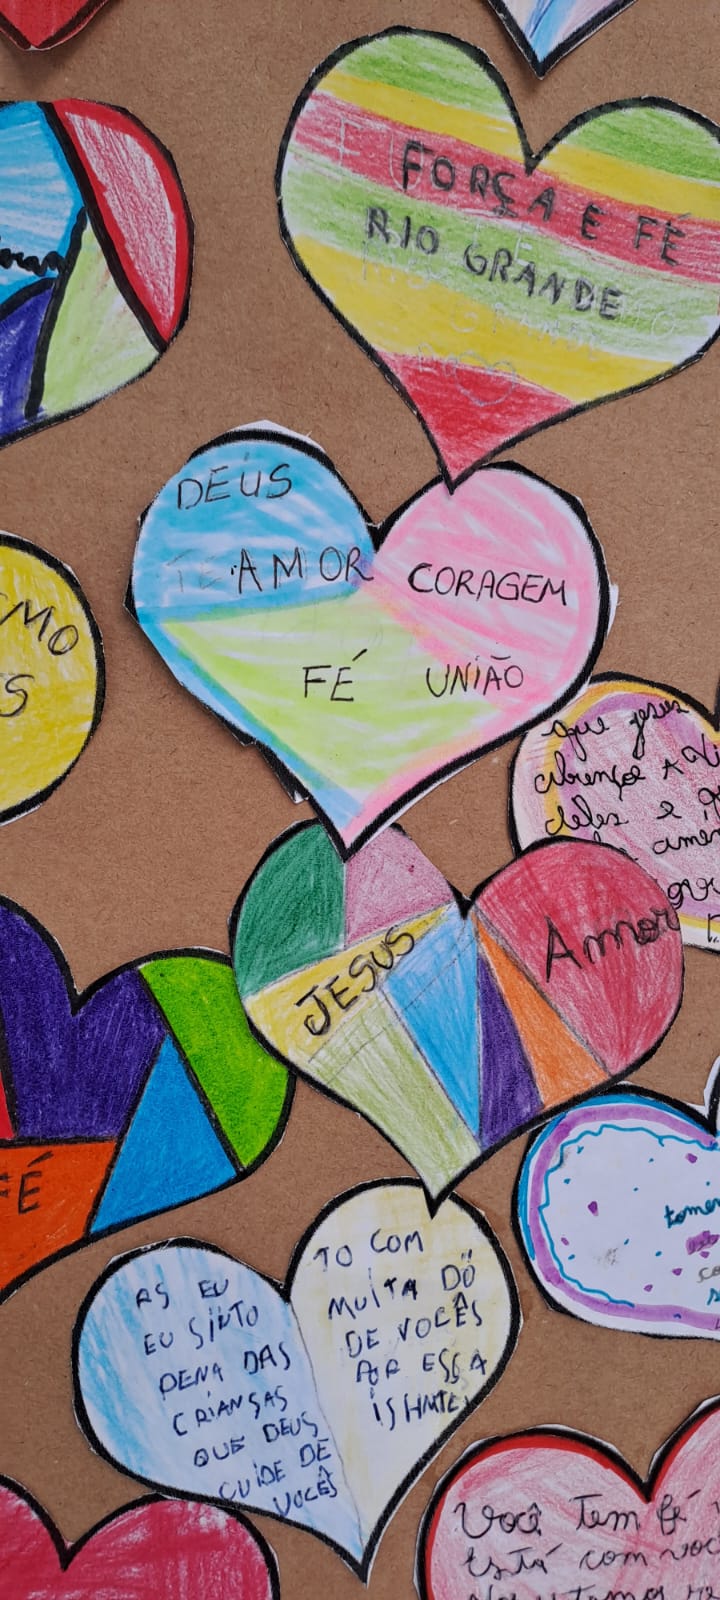 FORÇA E FÉ
RIO GRANDE
DEUS
AMOR
CORAGEM
FÉ
UNIÃO
SMO
S
que jesus
abençoe A Vi
deles e
amém
JESUS
Amor
FÉ
tomem
AS EU
EU SINTO
PENA DAS
CRIANSAS
QUE DEUS
CUIDE DE
VOCÊS
TO COM
MUITA DÓ
DE VOCÊS
POR ESSA
Você tem fé
Está com você